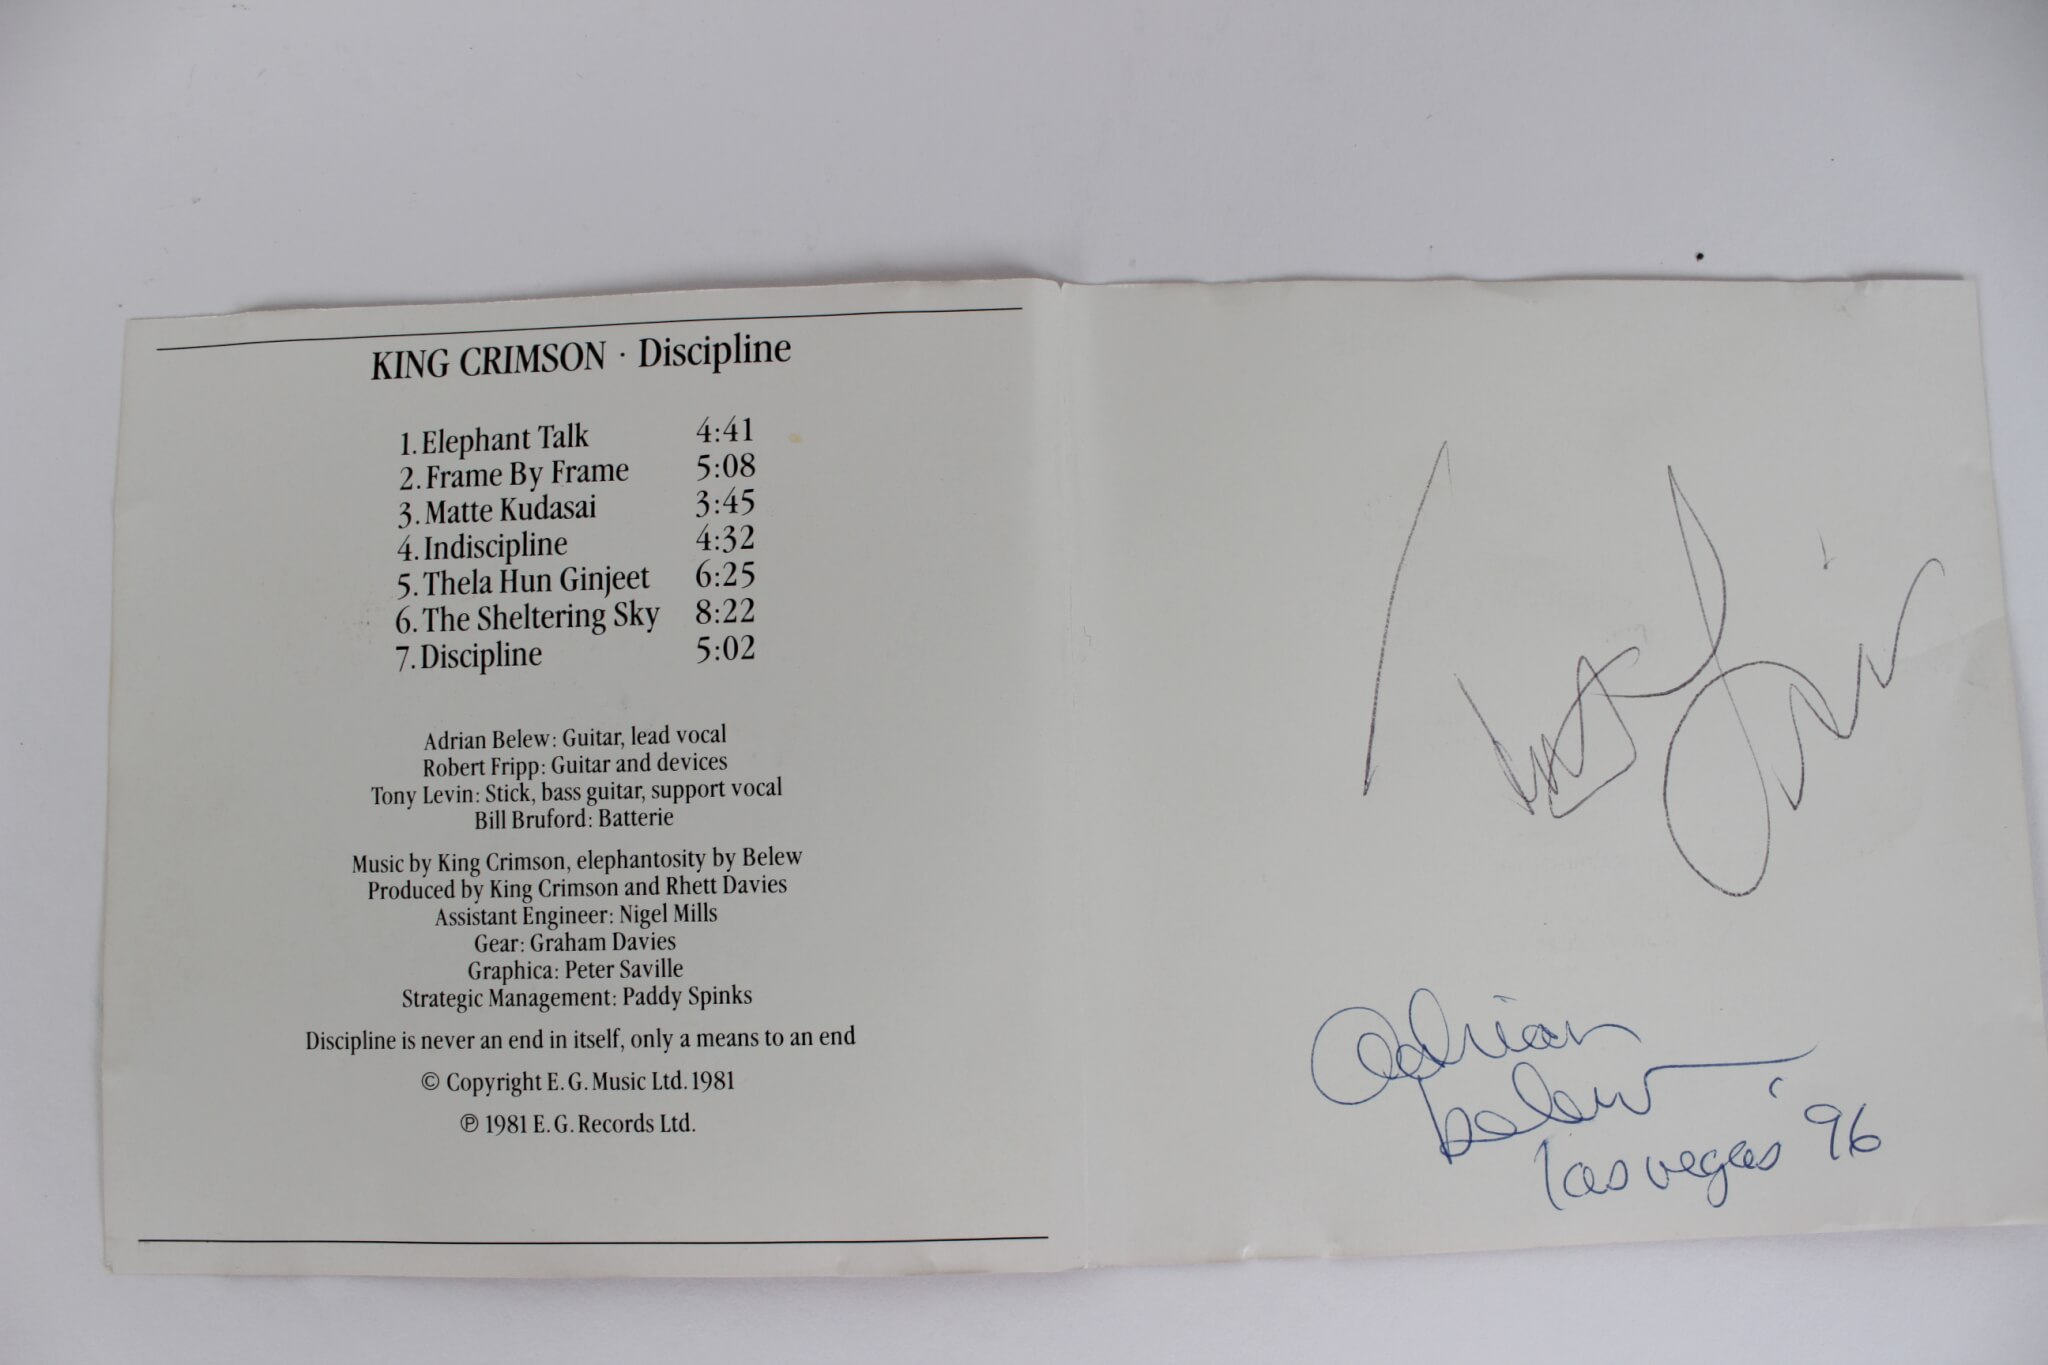 KING CRIMSON · Discipline
1. Elephant Talk 4:41
2. Frame By Frame 5:08
3. Matte Kudasai 3:45
4. Indiscipline 4:32
5. Thela Hun Ginjeet 6:25
6. The Sheltering Sky 8:22
7. Discipline 5:02
Adrian Belew: Guitar, lead vocal
Robert Fripp: Guitar and devices
Tony Levin: Stick, bass guitar, support vocal
Bill Bruford: Batterie
Music by King Crimson, elephantosity by Belew
Produced by King Crimson and Rhett Davies
Assistant Engineer: Nigel Mills
Gear: Graham Davies
Graphica: Peter Saville
Strategic Management: Paddy Spinks
Discipline is never an end in itself, only a means to an end
© Copyright E.G. Music Ltd. 1981
℗ 1981 E.G. Records Ltd.
adrian
belew
las vegas '96